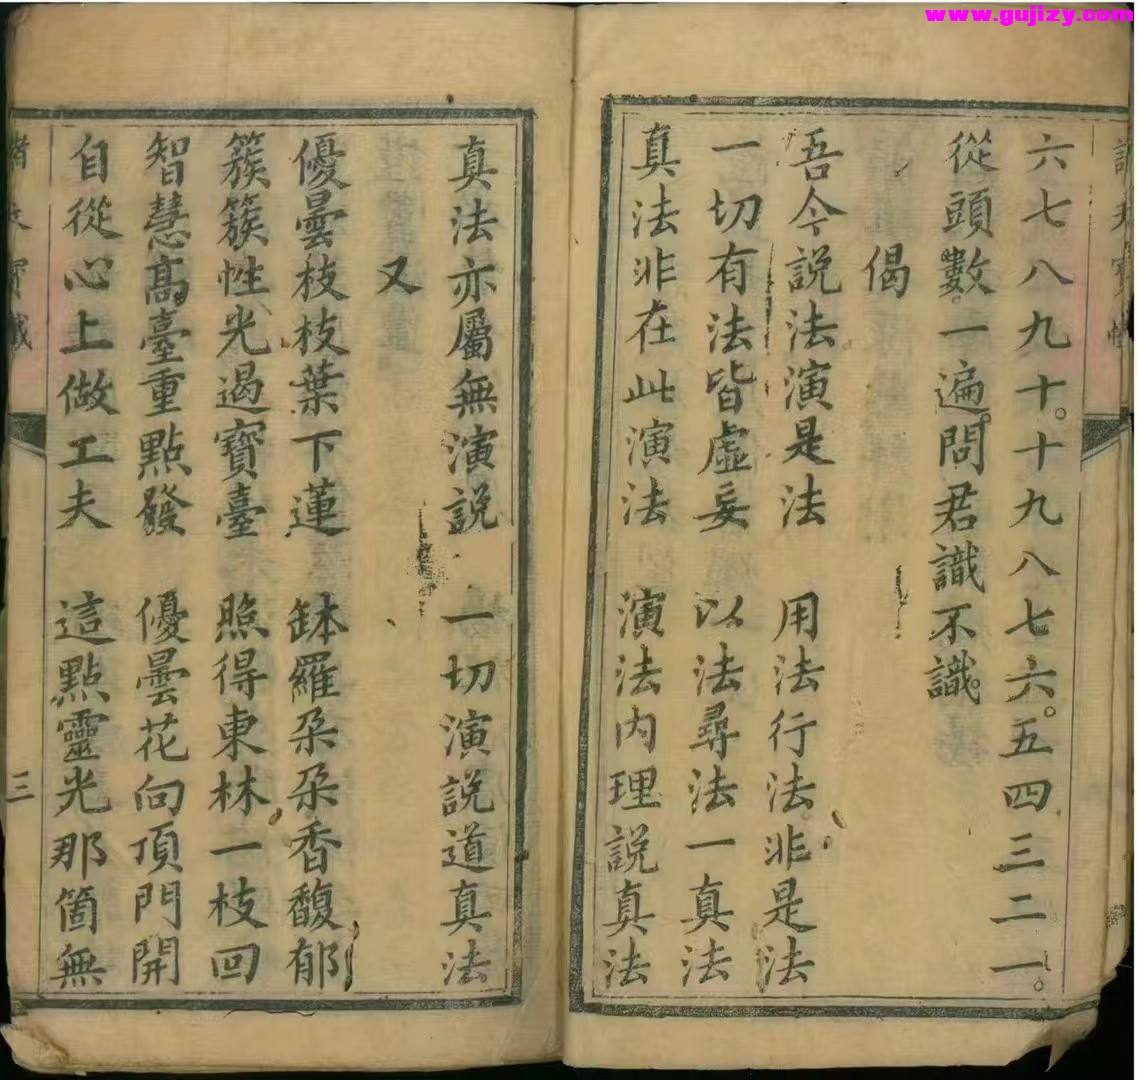 www.gujizy.com
六七八九十。十九八七六。五四三二一。
從頭數。一遍。問君識不識。
偈
吾今說法演是法 用法行法非是法
一切有法皆虛妄 以法尋法一真法
真法非在此演法 演法內理說真法
真法亦屬無演說 一切演說道真法
又
優曇枝枝葉下蓮 鉢羅朵朵香馥郁
簇簇性光遏寶臺 照得東林一枝回
智慧高臺重點發 優曇花向頂門開
自從心上做工夫 這點靈光那箇無
三